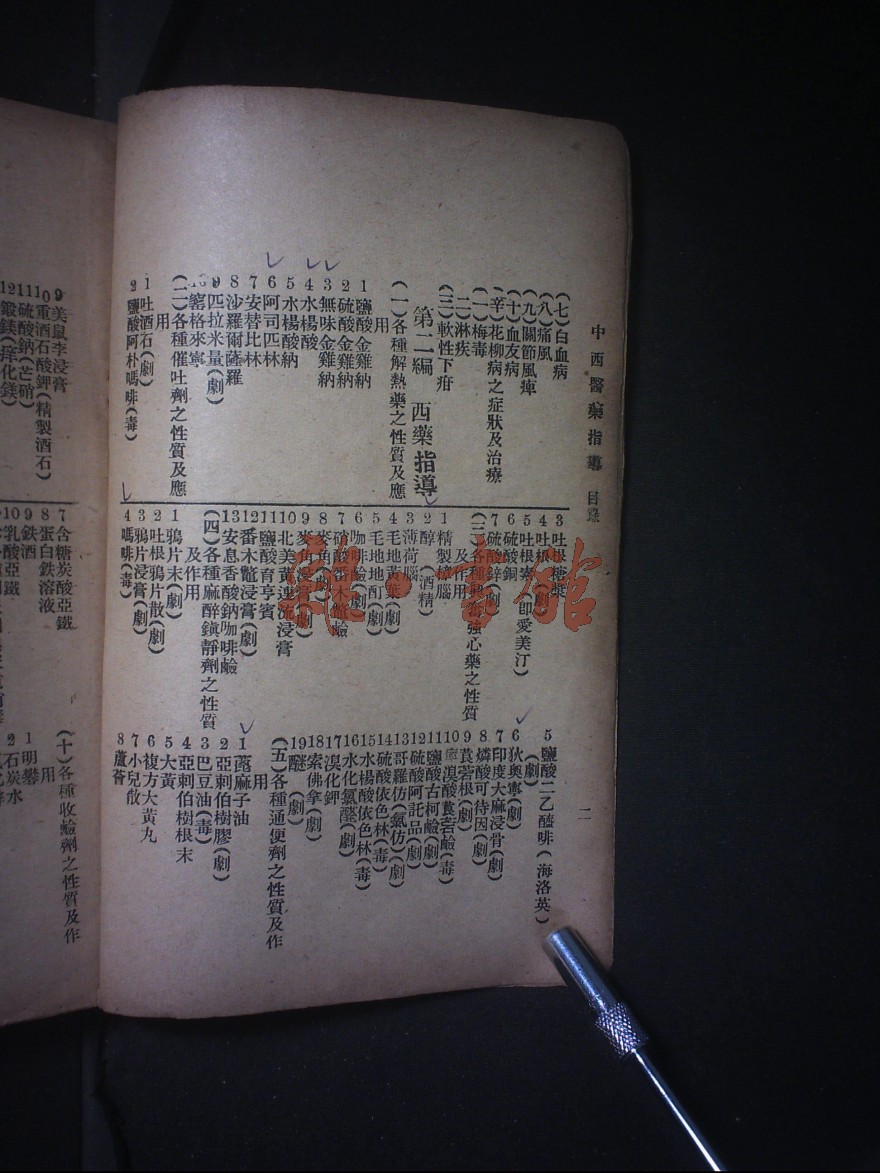 中西醫藥指導 目錄
二
(七)白血病
(八)痛風
(九)關節風痺
(十)血友病
(辛)花柳病之症狀及治療
(一)梅毒
(二)淋疾
(三)軟性下疳
第二編 西藥指導
(一)各種解熱藥之性質及應
用
1 鹽酸金雞納
2 硫酸金雞納
3 無味金雞納
4 水楊酸
5 水楊酸納
6 阿司匹林
7 安替比林
8 沙羅爾薩羅
9 匹拉米量(劇)
窰格來寧
(二)各種催吐劑之性質及應
用
1 吐酒石(劇)
2 鹽酸阿朴嗎啡(毒)
3 吐根糖漿
4 吐根(劇)
5 吐根素(即愛美汀)
6 硫酸銅
7 硫酸鋅(劇)
(三)各種興奮強心藥之性質
及作用
1 精製樟腦
2 醇(酒精)
3 薄荷腦
4 毛地黃葉(劇)
5 毛地地酊(劇)
6 咖啡鹼(劇)
7 硝酸番木鼈鹼
8 麥角(劇)
9 麥角浸膏(劇)
10 北美黃連流浸膏
11 鹽酸育亨賓
12 番木鼈浸膏(劇)
13 安息香酸鈉咖啡鹼
(四)各種麻醉鎭靜劑之性質
及作用
1 鴉片末(劇)
2 吐根鴉片散(劇)
3 鴉片浸膏(劇)
4 嗎啡(毒)
5 鹽酸二乙醯啡(海洛英)
(劇)
6 狄奧寧(劇)
7 印度大麻浸膏(劇)
8 燐酸可待因(劇)
9 莨菪根(劇)
10 溴酸莨菪鹼(毒)
11 鹽酸古柯鹼(劇)
12 硫酸阿託品(劇)
13 哥羅仿(氯仿)(劇)
14 硫酸依色林(毒)
15 水楊酸依色林(毒)
16 水化氯醛(劇)
17 溴化鉀
18 索佛拿(劇)
19 醚(劇)
(五)各種通便劑之性質及作
用
1 蓖麻子油
2 亞刺伯樹膠(劇)
3 巴豆油(毒)
4 亞刺伯樹根末
5 大黃
6 複方大黃丸
7 小兒散
8 蘆薈
9 美鼠李浸膏
10 重酒石酸鉀(精製酒石)
11 硫酸鈉(芒硝)
12 鍛鎂(㷍化鎂)
7 含糖炭酸亞鐵
8 蛋白鉄溶液
9 鉄酒
10 乳酸亞鐵
(十)各種收鹼劑之性質及作
用
1 明礬
2 石炭水
雜·書館